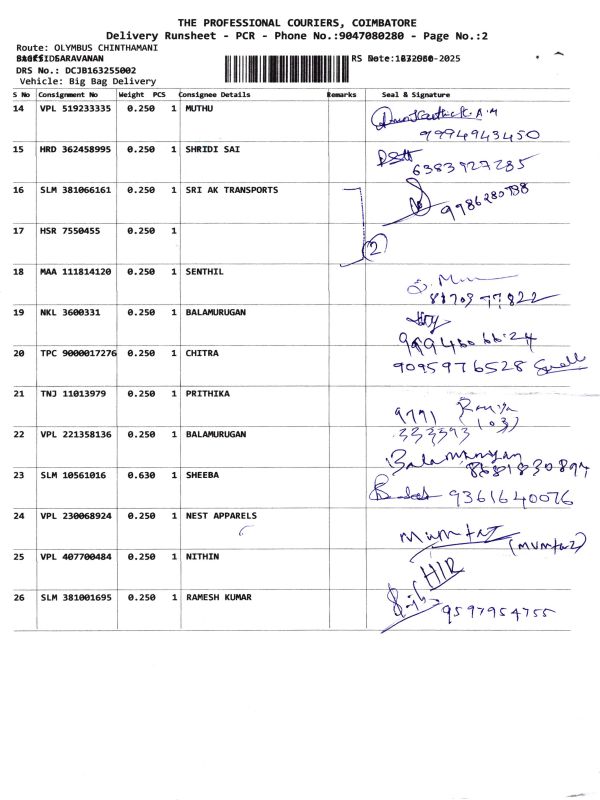 THE PROFESSIONAL COURIERS, COIMBATORE
Delivery Runsheet - PCR - Phone No.:9047080280 - Page No.:2
Route: OLYMBUS CHINTHAMANI
SARAVANAN
RS Date: -2025
DRS No.: DCJB163255002
Vehicle: Big Bag Delivery
S No Consignment No Weight PCS Consignee Details Remarks Seal & Signature
14 VPL 519233335 0.250 1 MUTHU
9994943450
15 HRD 362458995 0.250 1 SHRIDI SAI
6383927285
16 SLM 381066161 0.250 1 SRI AK TRANSPORTS
17 HSR 7550455 0.250 1
2
18 MAA 111814120 0.250 1 SENTHIL
19 NKL 3600331 0.250 1 BALAMURUGAN
20 TPC 9000017276 0.250 1 CHITRA
9095976528
21 TNJ 11013979 0.250 1 PRITHIKA
9791
333393 (03)
22 VPL 221358136 0.250 1 BALAMURUGAN
Balamurugan
23 SLM 10561016 0.630 1 SHEEBA
9361640076
24 VPL 230068924 0.250 1 NEST APPARELS
Mumtaz
(mumtaz)
25 VPL 407700484 0.250 1 NITHIN
H/R
26 SLM 381001695 0.250 1 RAMESH KUMAR
9597954755